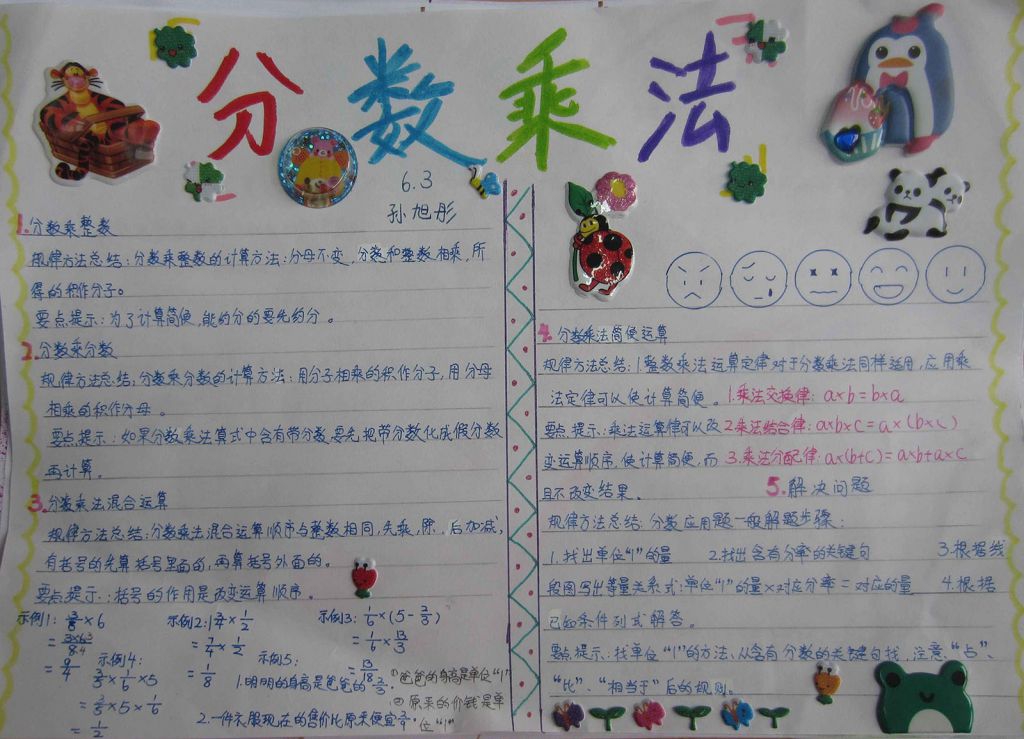 分数乘法
6.3
孙旭彤
1.分数乘整数
规律方法总结:分数乘整数的计算方法:分母不变,分数和整数相乘,所
得的积作分子。
要点提示:为了计算简便,能约分的要先约分。
2.分数乘分数
规律方法总结:分数乘分数的计算方法:用分子相乘的积作分子,用分母
相乘的积作分母。
要点提示:如果分数乘法算式中含有带分数,要先把带分数化成假分数
再计算。
3.分数乘法混合运算
规律方法总结:分数乘法混合运算顺序与整数相同,先乘,除,后加减,
有括号的先算括号里面的,再算括号外面的。
要点提示:括号的作用是改变运算顺序。
示例1: 3/8×6
=
= 9/4
示例2:
= 7/4×1/2
示例3: 1/6×(5-2/3)
= 1/6×13/3
= 13/18
示例4:
×1/6×5
×5×1/6
= 1/2
示例5:
1.明明的身高是爸爸的
①爸爸的身高是单位“1”
2.一件衣服现在的售价比原来便宜
②原来的价钱是单
位“1”
4.分数乘法简便运算
规律方法总结:1整数乘法运算定律对于分数乘法同样适用,应用乘
法定律可以使计算简便。1.乘法交换律:a×b=b×a
要点提示:乘法运算律可以改2乘法结合律:a×b×c=a×(b×c)
变运算顺序,使计算简便,而3.乘法分配律:a×(b+c)=a×b+a×c
且不改变结果。 5.解决问题
规律方法总结:分数应用题一般解题步骤:
1.找出单位“1”的量 2.找出含有分率的关键句 3.根据线
段图写出等量关系式:单位“1”的量×对应分率=对应的量 4.根据
已知条件列式解答。
要点提示:找单位“1”的方法:从含有分数的关键句找,注意“占”、
“比”、“相当于”后的规则。